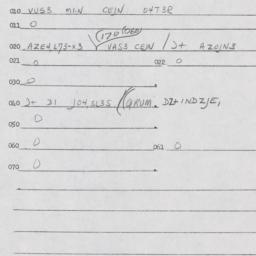 010 VUSS MIN CEIN O4T3R
011 0
IZD(OEN)
020 AZE4,L73-X3 VASS CEIN / J+ AZOINS
021 0 022 0
030 0
040 J+ JI JO4,SL3S (GRUM. DZ+INDZJE,
050 0
060 0 061 0
070 0